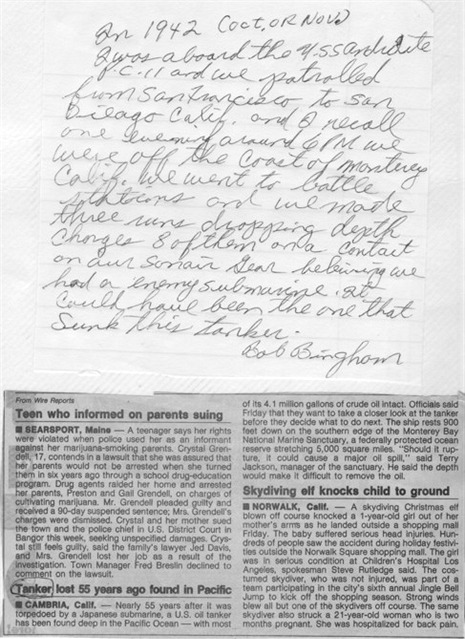 In 1942 (oct, OR NOV)
I was aboard the USS Andradite
P.C. 11 and we patrolled
from San Francisco to San
Dieago Calif. and I recall
one evening around 6 PM we
were off the Coast of Monterey
Calif. We went to battle
stations and we made
three runs dropping depth
Charges 8 of them on a contact
on our sonair Gear beleiving we
had a enemy submarine. It
could have been the one that
Sunk this tanker.
Bob Bingham
From Wire Reports
Teen who informed on parents suing
■ SEARSPORT, Maine — A teenager says her rights
were violated when police used her as an informant
against her marijuana-smoking parents. Crystal Gren-
dell, 17, contends in a lawsuit that she was assured that
her parents would not be arrested when she turned
them in six years ago through a school drug-education
program. Drug agents raided her home and arrested
her parents, Preston and Gail Grendell, on charges of
cultivating marijuana. Mr. Grendell pleaded guilty and
received a 90-day suspended sentence; Mrs. Grendell's
charges were dismissed. Crystal and her mother sued
the town and the police chief in U.S. District Court in
Bangor this week, seeking unspecified damages. Crys-
tal still feels guilty, said the family's lawyer Jed Davis,
and Mrs. Grendell lost her job as a result of the
investigation. Town Manager Fred Breslin declined to
comment on the lawsuit.
Tanker lost 55 years ago found in Pacific
■ CAMBRIA, Calif. — Nearly 55 years after it was
torpedoed by a Japanese submarine, a U.S. oil tanker
has been found deep in the Pacific Ocean — with most
of its 4.1 million gallons of crude oil intact. Officials said
Friday that they want to take a closer look at the tanker
before they decide what to do next. The ship rests 900
feet down on the southern edge of the Monterey Bay
National Marine Sanctuary, a federally protected ocean
reserve stretching 5,000 square miles. "Should it rup-
ture, it could cause a major spill," said Terry
Jackson, manager of the sanctuary. He said the depth
would make it difficult to remove the oil.
Skydiving elf knocks child to ground
■ NORWALK, Calif. — A skydiving Christmas elf
blown off course knocked a 1-year-old girl out of her
mother's arms as he landed outside a shopping mall
Friday. The baby suffered serious head injuries. Hun-
dreds of people saw the accident during holiday festivi-
ties outside the Norwalk Square shopping mall. The girl
was in serious condition at Children's Hospital Los
Angeles, spokesman Steve Rutledge said. The cos-
tumed skydiver, who was not injured, was part of a
team participating in the city's sixth annual Jingle Bell
Jump to kick off the shopping season. Strong winds
blew all but one of the skydivers off course. The same
skydiver also struck a 21-year-old woman who is two
months pregnant. She was hospitalized for back pain.